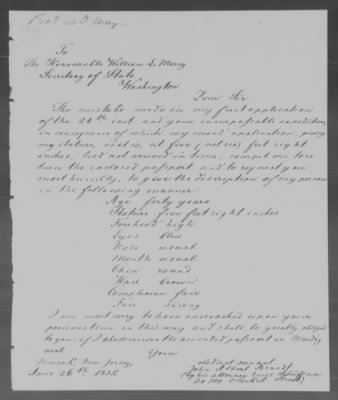 To
The Honourable William L. Marcy
Secretary of State
Washington
Dear Sir
The mistake made in my first application
of the 22th and your
in consequence of which my second application, giving
my stature, at five (not six) feet eight
inches, had not arrived in time, compels me to re-
turn the enclosed passport and to request you
most humbly, to give the description of my person
in the following manner:
Age forty years
Stature five feet eight inches
Forehead high
Eyes blue
Nose usual
Mouth usual
Chin round
Hair brown
Complexion fair
Face
I am most sorry to have encroached upon your
precious time in this way and shall be greatly obliged
to you, if I shall receive the amended passport on Monday
next.
Your
obedient servant
Newark, New Jersey,
John Albert
26th 1855
by his attorney
No 100 Market Street